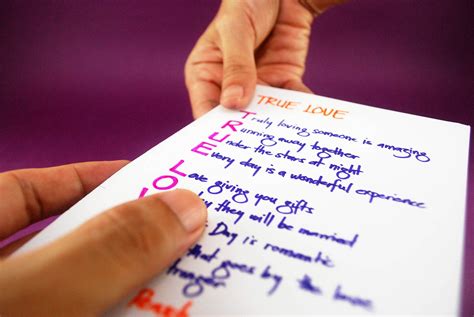 TRUE LOVE
Truly loving someone is amazing
Running away together
Under the stars at night
Every day is a wonderful experience
Love giving you gifts
they will be married
Day is romantic
that goes by the love